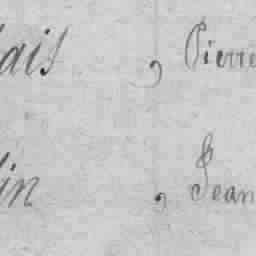 ais , Pierre
in , Jean